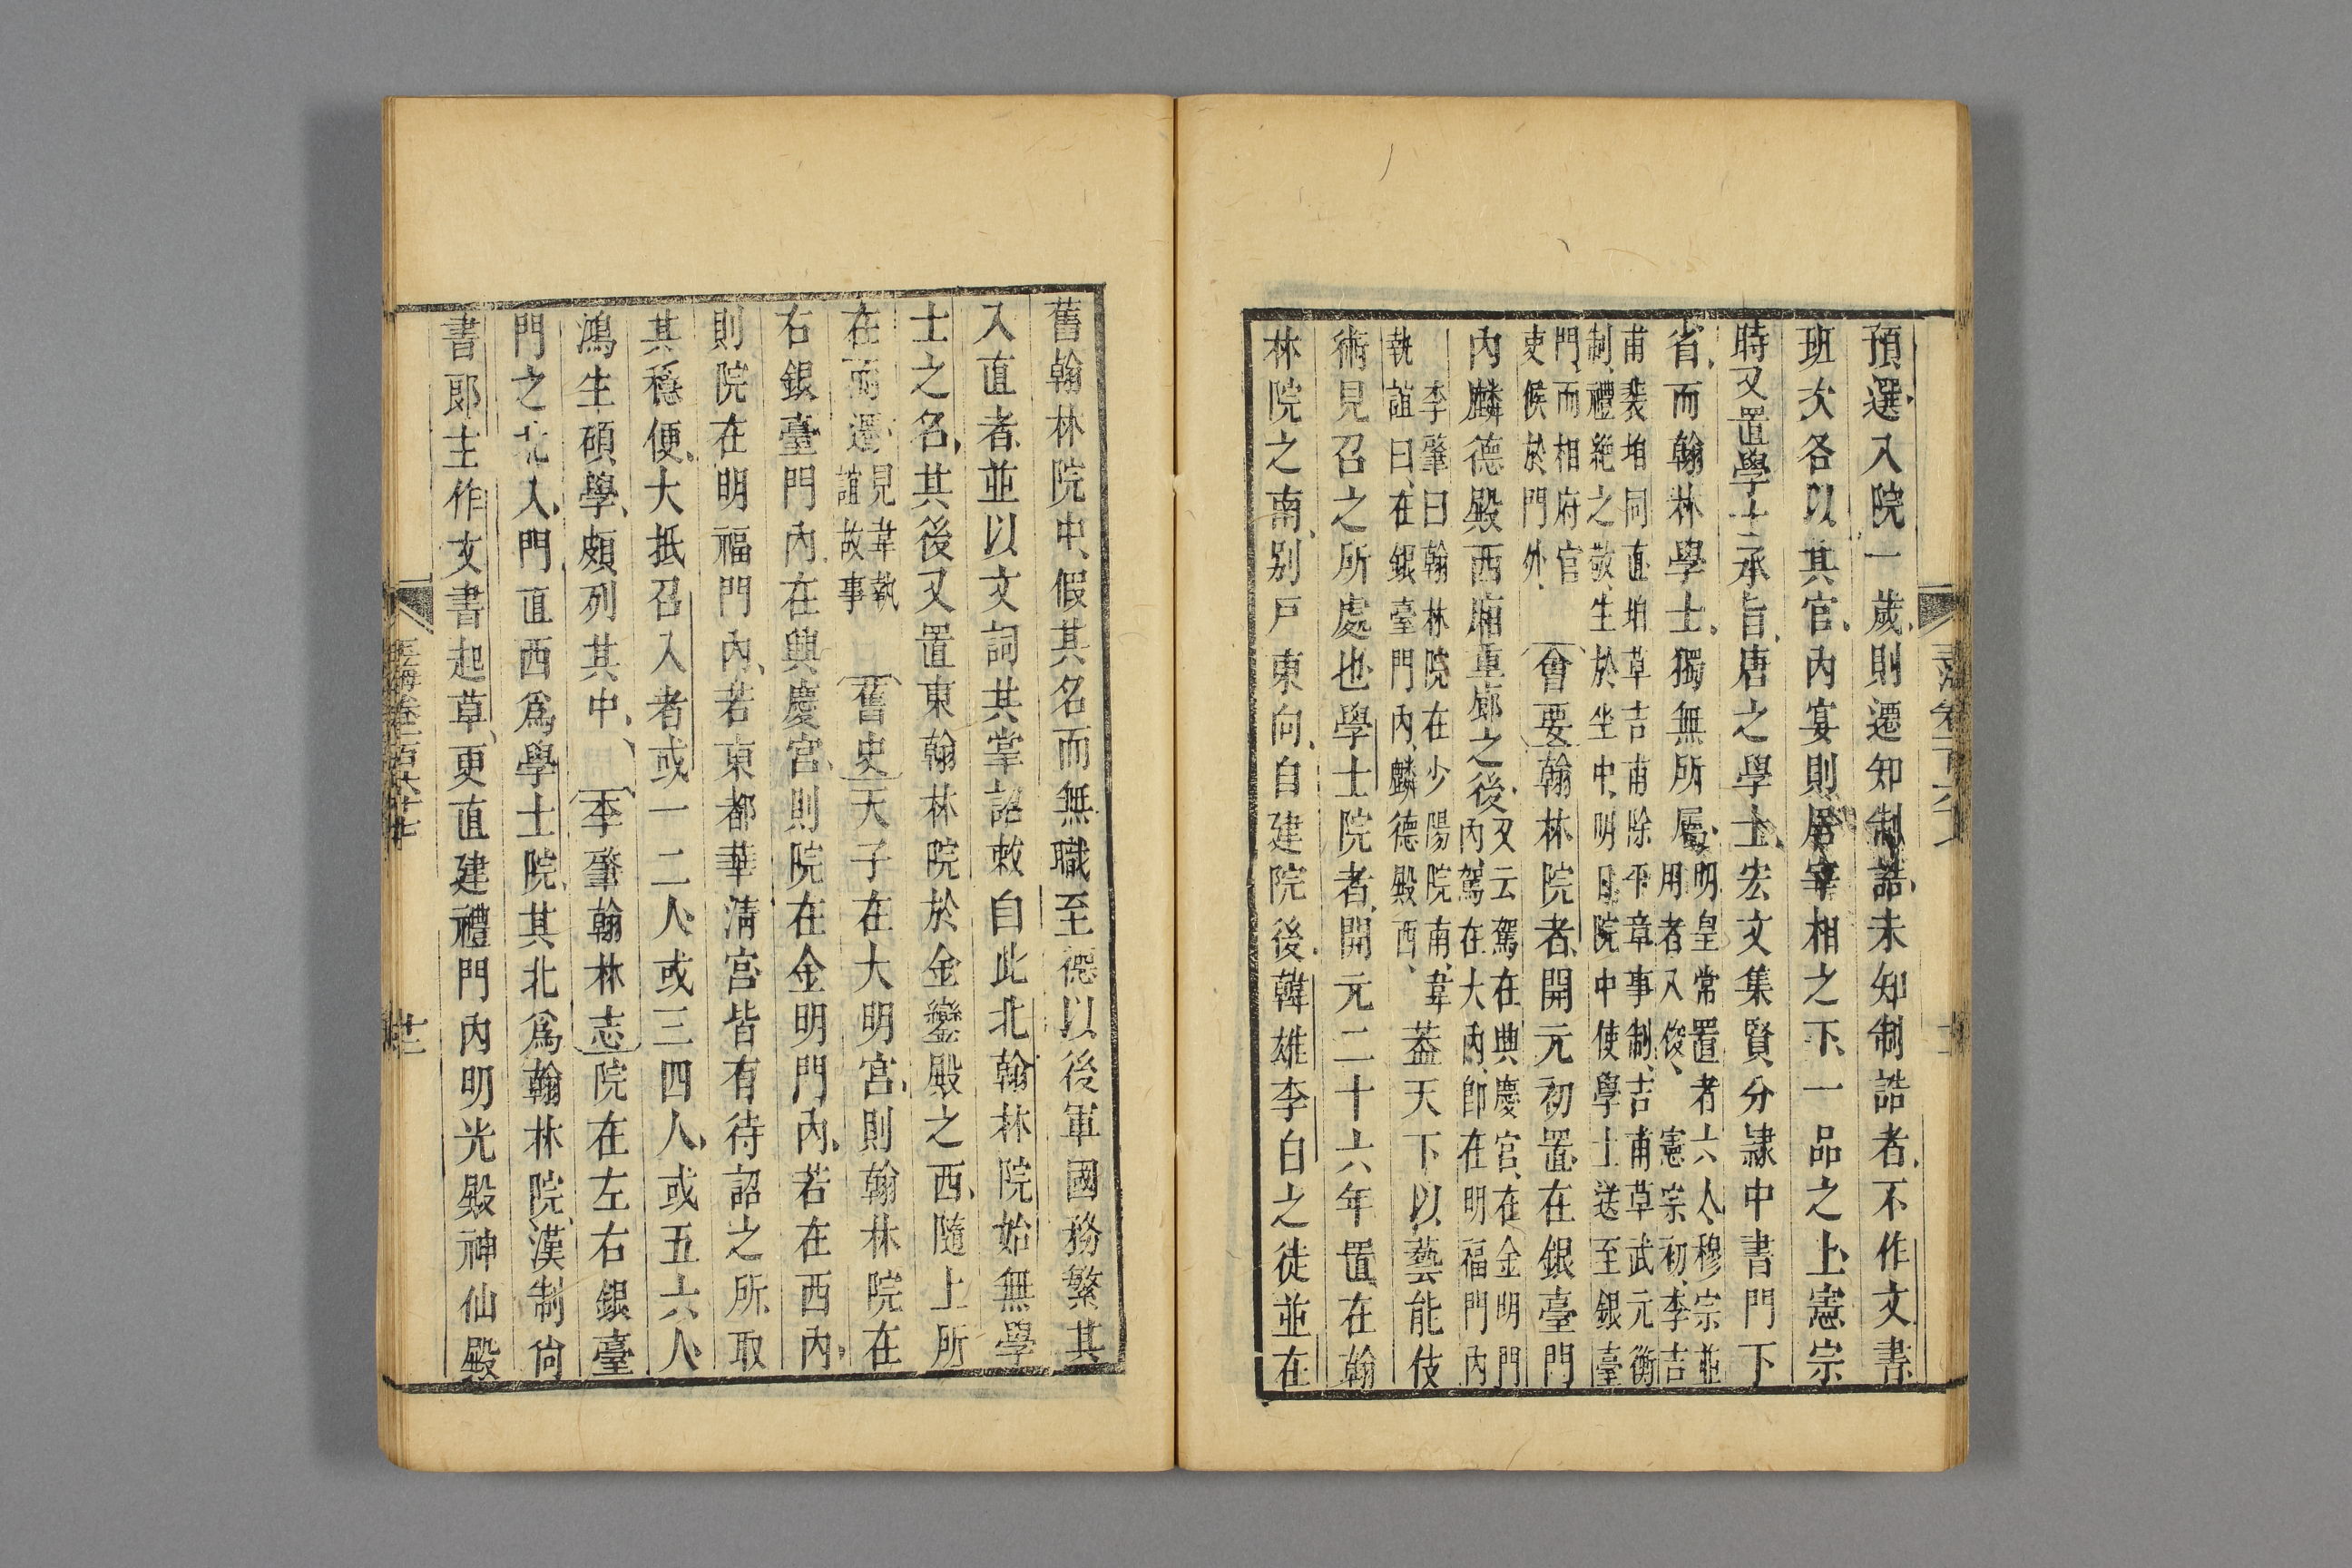 預選入院一歲則遷知制誥未知制誥者不作文書
班次各以其官內宴則居宰相之下一品之上憲宗
時又置學士承旨唐之學士宏文集賢分隸中書門下
省而翰林學士獨無所屬明皇常置者六人穆宗並
用者入俊憲宗初李吉
甫裴垍同直垍草吉甫除平章事制吉甫草武元衡
制禮絶之敬生於坐中明日院中使學士送至銀臺
門而相府官
吏候於門外會要翰林院者開元初置在銀臺門
內麟德殿西廂重廊之後又云駕在興慶宮在金明門
內駕在大內卽在明福門內
李肇曰翰林院在少陽院南韋
執誼曰在銀臺門內麟德殿西蓋天下以藝能伎
術見召之所處也學士院者開元二十六年置在翰
林院之南別戶東向自建院後韓雄李白之徒並在
舊翰林院中假其名而無職至德以後軍國務繁其
入直者並以文詞共掌詔敕自此北翰林院始無學
士之名其後又置東翰林院於金鑾殿之西隨上所
在而遷見韋執
誼故事舊史天子在大明宮則翰林院在
右銀臺門內在興慶宮則院在金明門內若在西內
則院在明福門內若東都華清宮皆有待詔之所取
其穩便大抵召入者或一二人或三四人或五六人
鴻生碩學頗列其中李肇翰林志院在左右銀臺
門之北入門直西爲學士院其北爲翰林院漢制尙
書郎主作文書起草更直建禮門內明光殿神仙殿
玉海卷一百六十七
廿二